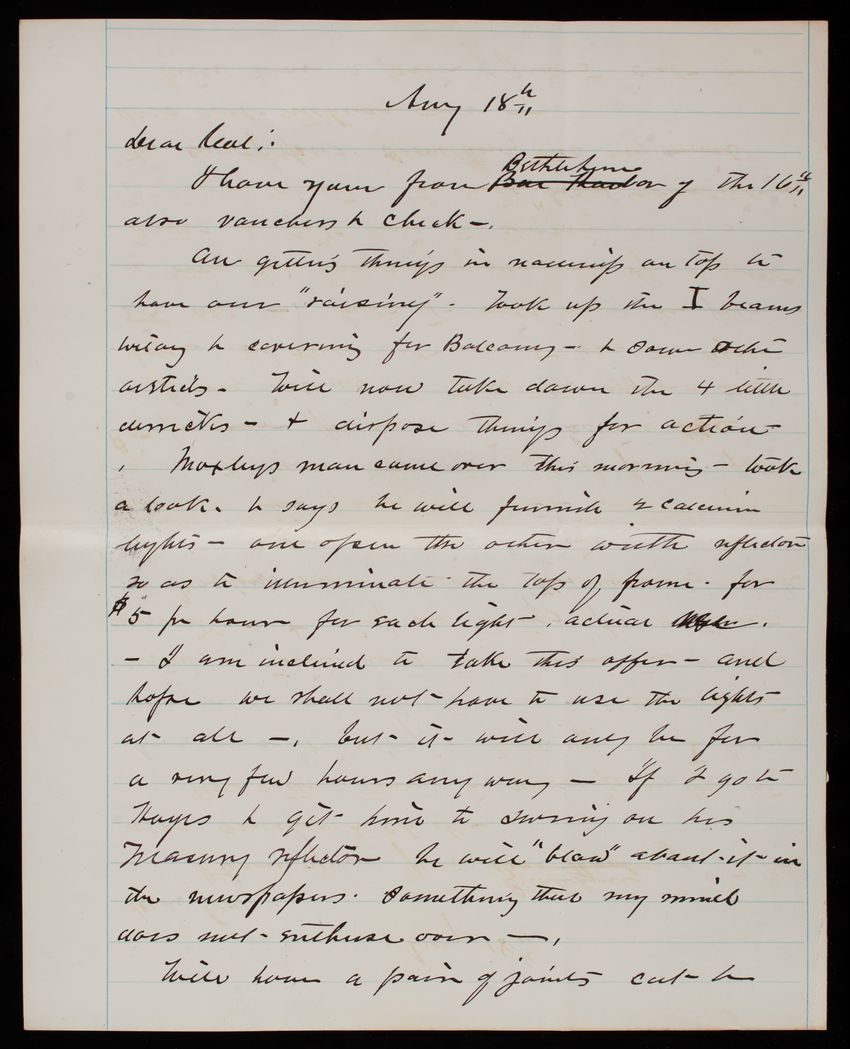 Aug 18th
dear Col:
I have yours from Bethlehem Bar Harbor of the 16th
also vouchers & check -.
Am getting things in on top to
have our "raising". Took up the I beams
& covering for Balcony - & some other
articles. Will now take down the 4 little
derricks - & dispose things for action -
Moxleys man came over this morning - took
a look. & says he will furnish 2 calcium
lights - one open the other with reflector
so as to illuminate the top of frame. for
$5 pr hour for each light. actual
- I am inclined to take this offer - and
hope we shall not have to use the lights
at all -, but it will only be for
a very few hours any way - If I go to
Hayes & get him to swing on his
Treasury reflector he will "blow" about it in
the newspapers. Something that my mind
does not enthuse over -,
Will have a pair of joints cut